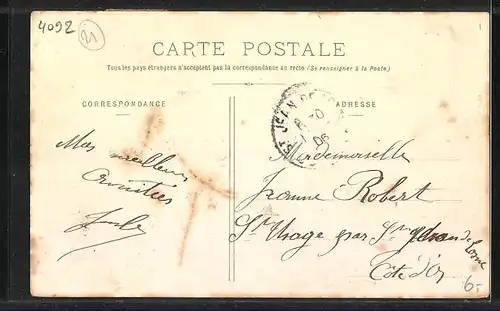 4092
21
CARTE POSTALE
Tous les pays étrangers n'acceptent pas la correspondance au recto (Se renseigner à la Poste)
CORRESPONDANCE
ADRESSE
ST JEAN DE
06
Mes meilleurs
Amitiés
Mademoiselle
Jeanne Robert
St Usage par St Jean de Losne
Côte d'Or
6-